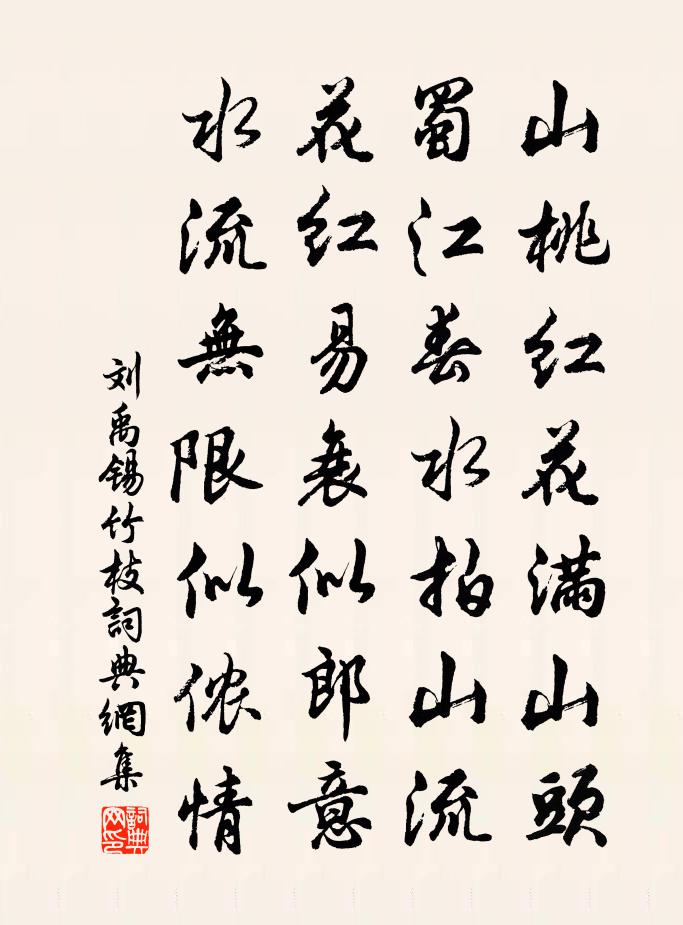 山桃红花满山頭
蜀江春水拍山流
花红易衰似郎意
水流無限似侬情
刘禹锡竹枝詞典網集
詞典網印